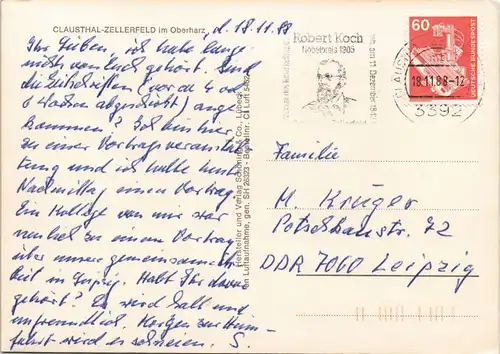 CLAUSTHAL-ZELLERFELD im Oberharz, d. 18.11.88
Ihr Lieben, ich habe lange
nichts von Euch gehört. Sind
die Zeitschriften (vor ca 4 od.
6 Wochen abgeschickt) ange-
kommen? Ich bin hier
zu einer Vortragsveranstal-
tung und ich halte heute
Nachmittag einen Vortrag.
Ein Kollege von mir war
neulich zu einem Vortrag
über unsere gemeinsame Ar-
beit in Leipzig. Habt Ihr davon
gehört? Es wird kalt und
unfreundlich. Morgen zur Heim-
fahrt wird es schneien. S.
Hersteller und Verlag Schöning & Co., Lübeck
en Luftaufnahme, gen. SH 26323 - Bestellnr. Cl Luft
Robert Koch
Nobelpreis 1905
am 11. Dezember 1843
60
DEUTSCHE BUNDESPOST
18.11.88-17
3392
Familie
M. Krüger
72
DDR 7060 Leipzig